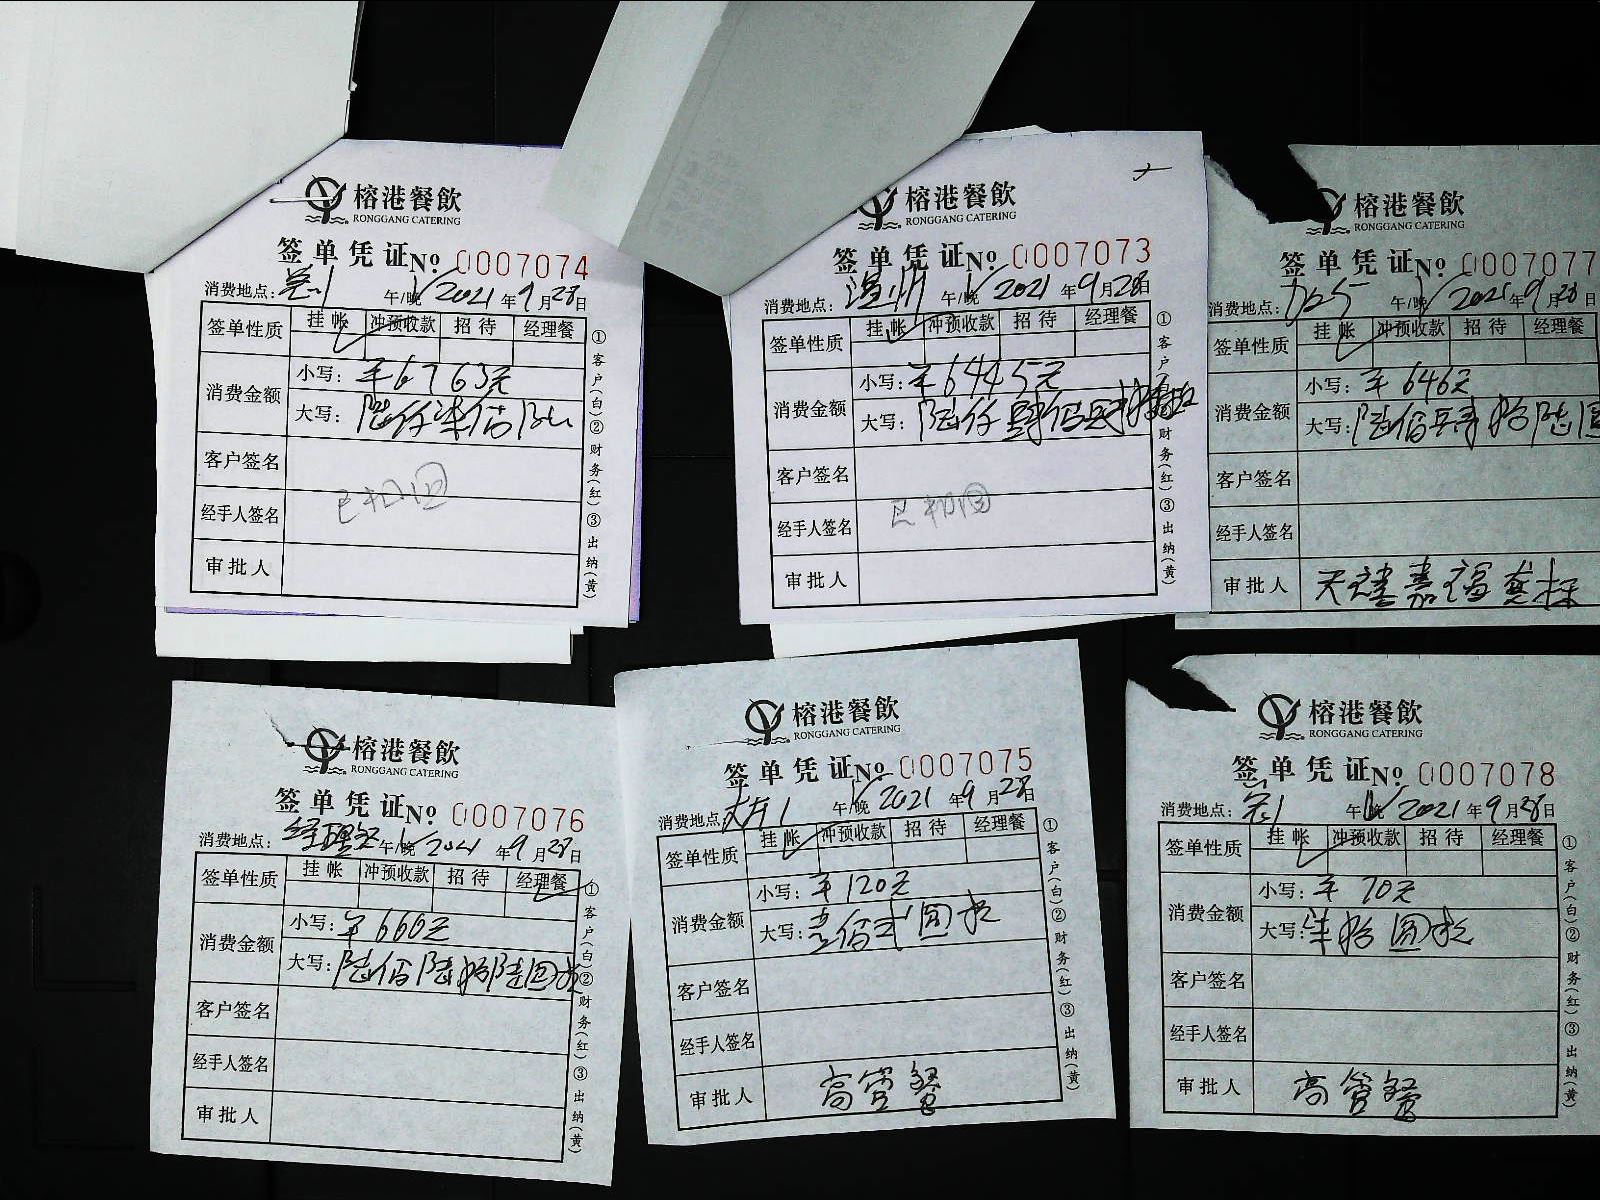 榕港餐飲
RONGGANG CATERING
签单凭证№ 0007074
消费地点: 午/晚 2021年9月28日
签单性质 挂帐 冲预收款 招待 经理餐
消费金额 小写: ¥6763元
大写: 陆仟柒佰陆
客户签名
经手人签名
审批人
①客户(白)②财务(红)③出纳(黄)
榕港餐飲
RONGGANG CATERING
签单凭证№ 0007073
消费地点: 温州 午/晚 2021年9月28日
签单性质 挂帐 冲预收款 招待 经理餐
消费金额 小写: ¥6445元
大写: 陆仟肆佰肆拾
客户签名
经手人签名
审批人
①客户(白)②财务(红)③出纳(黄)
榕港餐飲
RONGGANG CATERING
签单凭证№ 0007077
消费地点: 午/晚 2021年9月28日
签单性质 挂帐 冲预收款 招待 经理餐
消费金额 小写: ¥646元
大写: 陆佰肆拾陆圆
客户签名
经手人签名
审批人
榕港餐飲
RONGGANG CATERING
签单凭证№ 0007076
消费地点: 经理餐 午/晚 2021年9月28日
签单性质 挂帐 冲预收款 招待 经理餐
消费金额 小写: ¥666元
大写: 陆佰陆拾陆圆
客户签名
经手人签名
审批人
①客户(白)②财务(红)③出纳(黄)
榕港餐飲
RONGGANG CATERING
签单凭证№ 0007075
消费地点: 午/晚 2021年9月28日
签单性质 挂帐 冲预收款 招待 经理餐
消费金额 小写: ¥120元
大写: 壹佰贰圆整
客户签名
经手人签名
审批人 高管餐
①客户(白)②财务(红)③出纳(黄)
榕港餐飲
RONGGANG CATERING
签单凭证№ 0007078
消费地点: 午/晚 2021年9月28日
签单性质 挂帐 冲预收款 招待 经理餐
消费金额 小写: ¥70元
大写: 柒拾圆整
客户签名
经手人签名
审批人 高管餐
①客户(白)②财务(红)③出纳(黄)